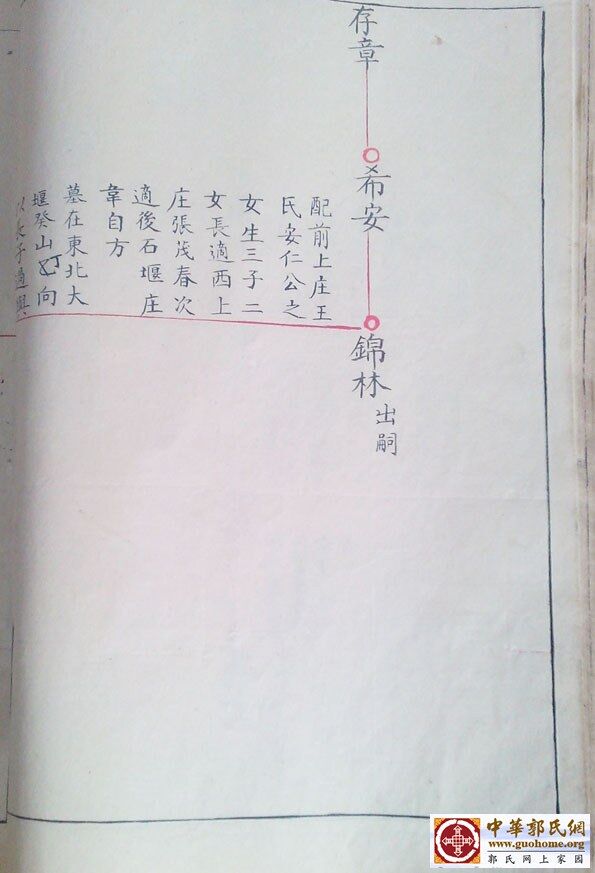 存章
希安
配前上庄王
氏安仁公之
女生三子二
女長適西上
庄張茂春次
適後石堰庄
韋自方
墓在東北大
堰癸山丁向
以長子過興
錦林出嗣
中華郭氏網
www.guohome.org
郭氏网上家园